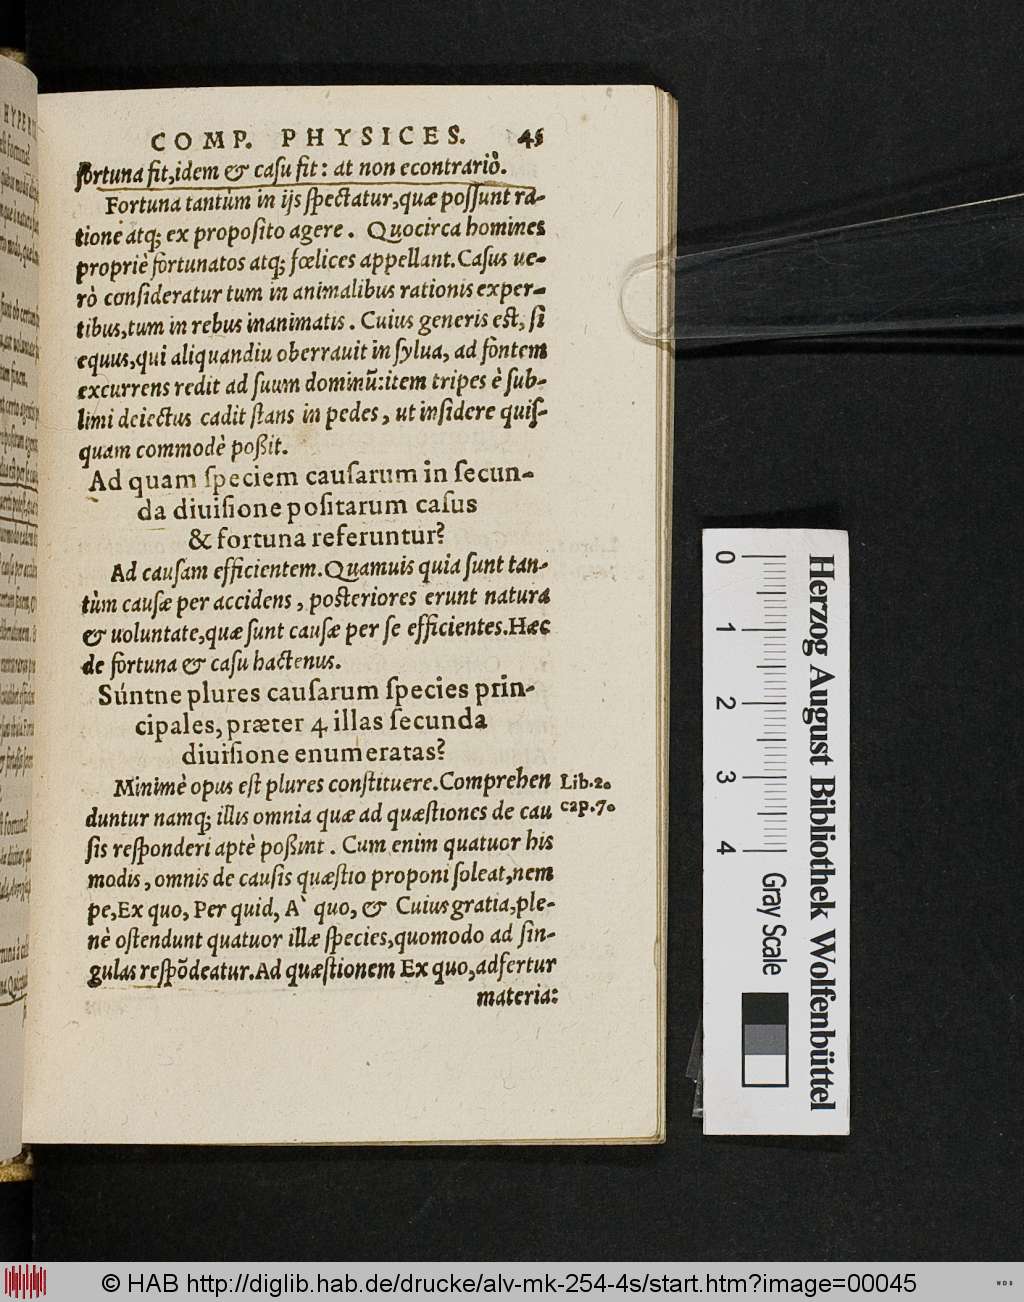 COMP. PHYSICES. 45
fortuna fit,idem & casu fit: at non econtrariò.
Fortuna tantùm in ijs spectatur,quæ possunt ra-
tione atq; ex proposito agere. Quocirca homines
propriè fortunatos atq; fœlices appellant.Casus ue-
rò consideratur tum in animalibus rationis exper-
tibus,tum in rebus inanimatis. Cuius generis est, si
equus,qui aliquandiu oberrauit in sylua, ad fontem
excurrens redit ad suum dominū:item tripes è sub-
limi deiectus cadit stans in pedes, ut insidere quis-
quam commodè poßit.
Ad quam speciem causarum in secun-
da diuisione positarum casus
& fortuna referuntur?
Ad causam efficientem.Quamuis quia sunt tan-
tùm causæ per accidens, posteriores erunt natura
& uoluntate,quæ sunt causæ per se efficientes.Hæc
de fortuna & casu hactenus.
Súntne plures causarum species prin-
cipales, præter 4 illas secunda
diuisione enumeratas?
Minimè opus est plures constituere.Comprehen
Lib.2.
duntur namq; illis omnia quæ ad quæstiones de cau
cap.7.
sis responderi aptè poßint. Cum enim quatuor his
modis, omnis de causis quæstio proponi soleat,nem
pe,Ex quo, Per quid, A` quo, & Cuius gratia,ple-
nè ostendunt quatuor illæ species,quomodo ad sin-
gulas respōdeatur.Ad quæstionem Ex quo,adfertur
materia:
0 1 2 3 4 Gray Scale
Herzog August Bibliothek Wolfenbüttel
© HAB http://diglib.hab.de/drucke/alv-mk-254-4s/start.htm?image=00045